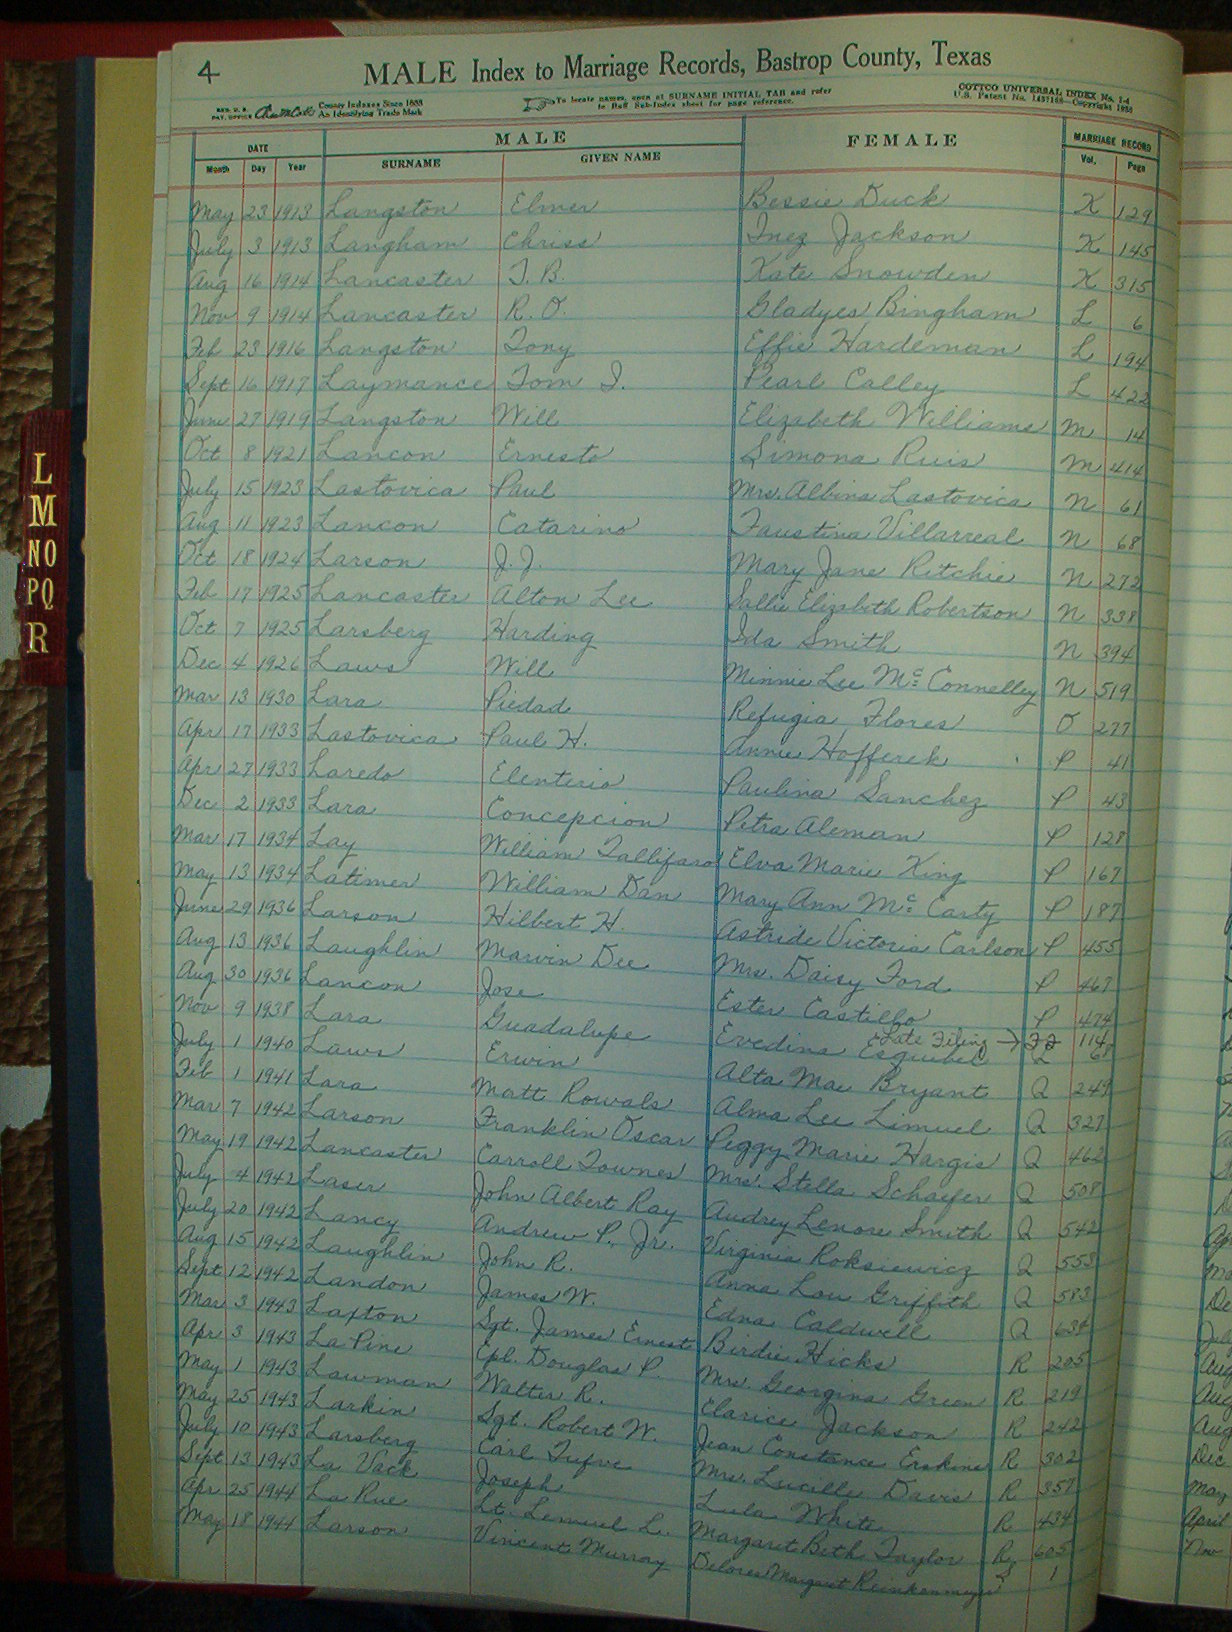 4
MALE Index to Marriage Records, Bastrop County, Texas
REG. U. S. PAT. OFFICE County Indexes Since 1888 An Identifying Trade Mark
To locate names, open at SURNAME INITIAL TAB and refer to Buff Sub-Index sheet for page reference.
COTTCO UNIVERSAL INDEX No. 1-4
U.S. Patent No. Copyright
DATE MALE FEMALE MARRIAGE RECORD
Month Day Year SURNAME GIVEN NAME Vol. Page
May 23 1913 Langston Elmer Bessie Duck K 129
July 3 1913 Langham Chriss Inez Jackson K 145
Aug 16 1914 Lancaster T. B. Kate Snowden K 315
Nov 9 1914 Lancaster R. O. Gladyes Bingham L 6
Feb 23 1916 Langston Tony Effie Hardeman L 194
Sept 16 1917 Laymance Tom I. Pearl Calley L 422
June 27 1919 Langston Will Elizabeth Williams M 14
Oct 8 1921 Lancon Ernesto Simona Ruis M 414
July 15 1923 Lastovica Paul Mrs. Albina Lastovica N 61
Aug 11 1923 Lancon Catarino Faustina Villarreal N 68
Oct 18 1924 Larson J. J. Mary Jane Ritchie N 272
Feb 17 1925 Lancaster Alton Lee Sallie Elizabeth Robertson N 338
Oct 7 1925 Larsberg Harding Ida Smith N 394
Dec 4 1926 Laws Will Minnie Lee Mc Connelley N 519
Mar 13 1930 Lara Piedad Refugia Flores O 277
Apr 17 1933 Lastovica Paul H. Annie Hofferek P 41
Apr 27 1933 Laredo Elenterio Paulina Sanchez P 43
Dec 2 1933 Lara Concepcion Petra Aleman P 128
Mar 17 1934 Lay William Tallifaro Elva Marie King P 167
May 13 1934 Latimer William Dan Mary Ann Mc Carty P 187
June 29 1936 Larson Hilbert H. Astride Victoria Carlson P 455
Aug 13 1936 Laughlin Marvin Dee Mrs. Daisy Ford P 467
Aug 30 1936 Lancon Jose Ester Castillo P 474
Late Filing → 114
Nov 9 1938 Lara Guadalupe Evedina Esquibel Q 68
July 1 1940 Laws Erwin Alta Mae Bryant Q 249
Feb 1 1941 Lara Matt Rowals Alma Lee Limuel Q 327
Mar 7 1942 Larson Franklin Oscar Peggy Marie Hargis Q 462
May 19 1942 Lancaster Carroll Townes Mrs. Stella Schaefer Q 508
July 4 1942 Laser John Albert Ray Audrey Lenore Smith Q 542
July 20 1942 Lancy Andrew P., Jr. Virginia Roksiewicz Q 553
Aug 15 1942 Laughlin John R. Anna Lou Griffith Q 583
Sept 12 1942 Landon James W. Edna Caldwell Q 634
Mar 3 1943 Laxton Sgt. James Ernest Birdie Hicks R 205
Apr 3 1943 La Pine Cpl. Douglas P. Mrs. Georgina Green R 219
May 1 1943 Lawman Walter R. Clarice Jackson R 242
May 25 1943 Larkin Sgt. Robert W. Jean Constance Erskine R 302
July 10 1943 Larsberg Carl Tufve Mrs. Lucille Davis R 357
Sept 13 1943 La Vack Joseph Lula White R 434
Apr 25 1944 La Rue Lt. Lemuel L. Margaret Beth Taylor R 605
May 18 1944 Larson Vincent Murray Delores Margaret Reinkenmeyer S 1
L
M
NO
PQ
R
Dec
May
April
Nov